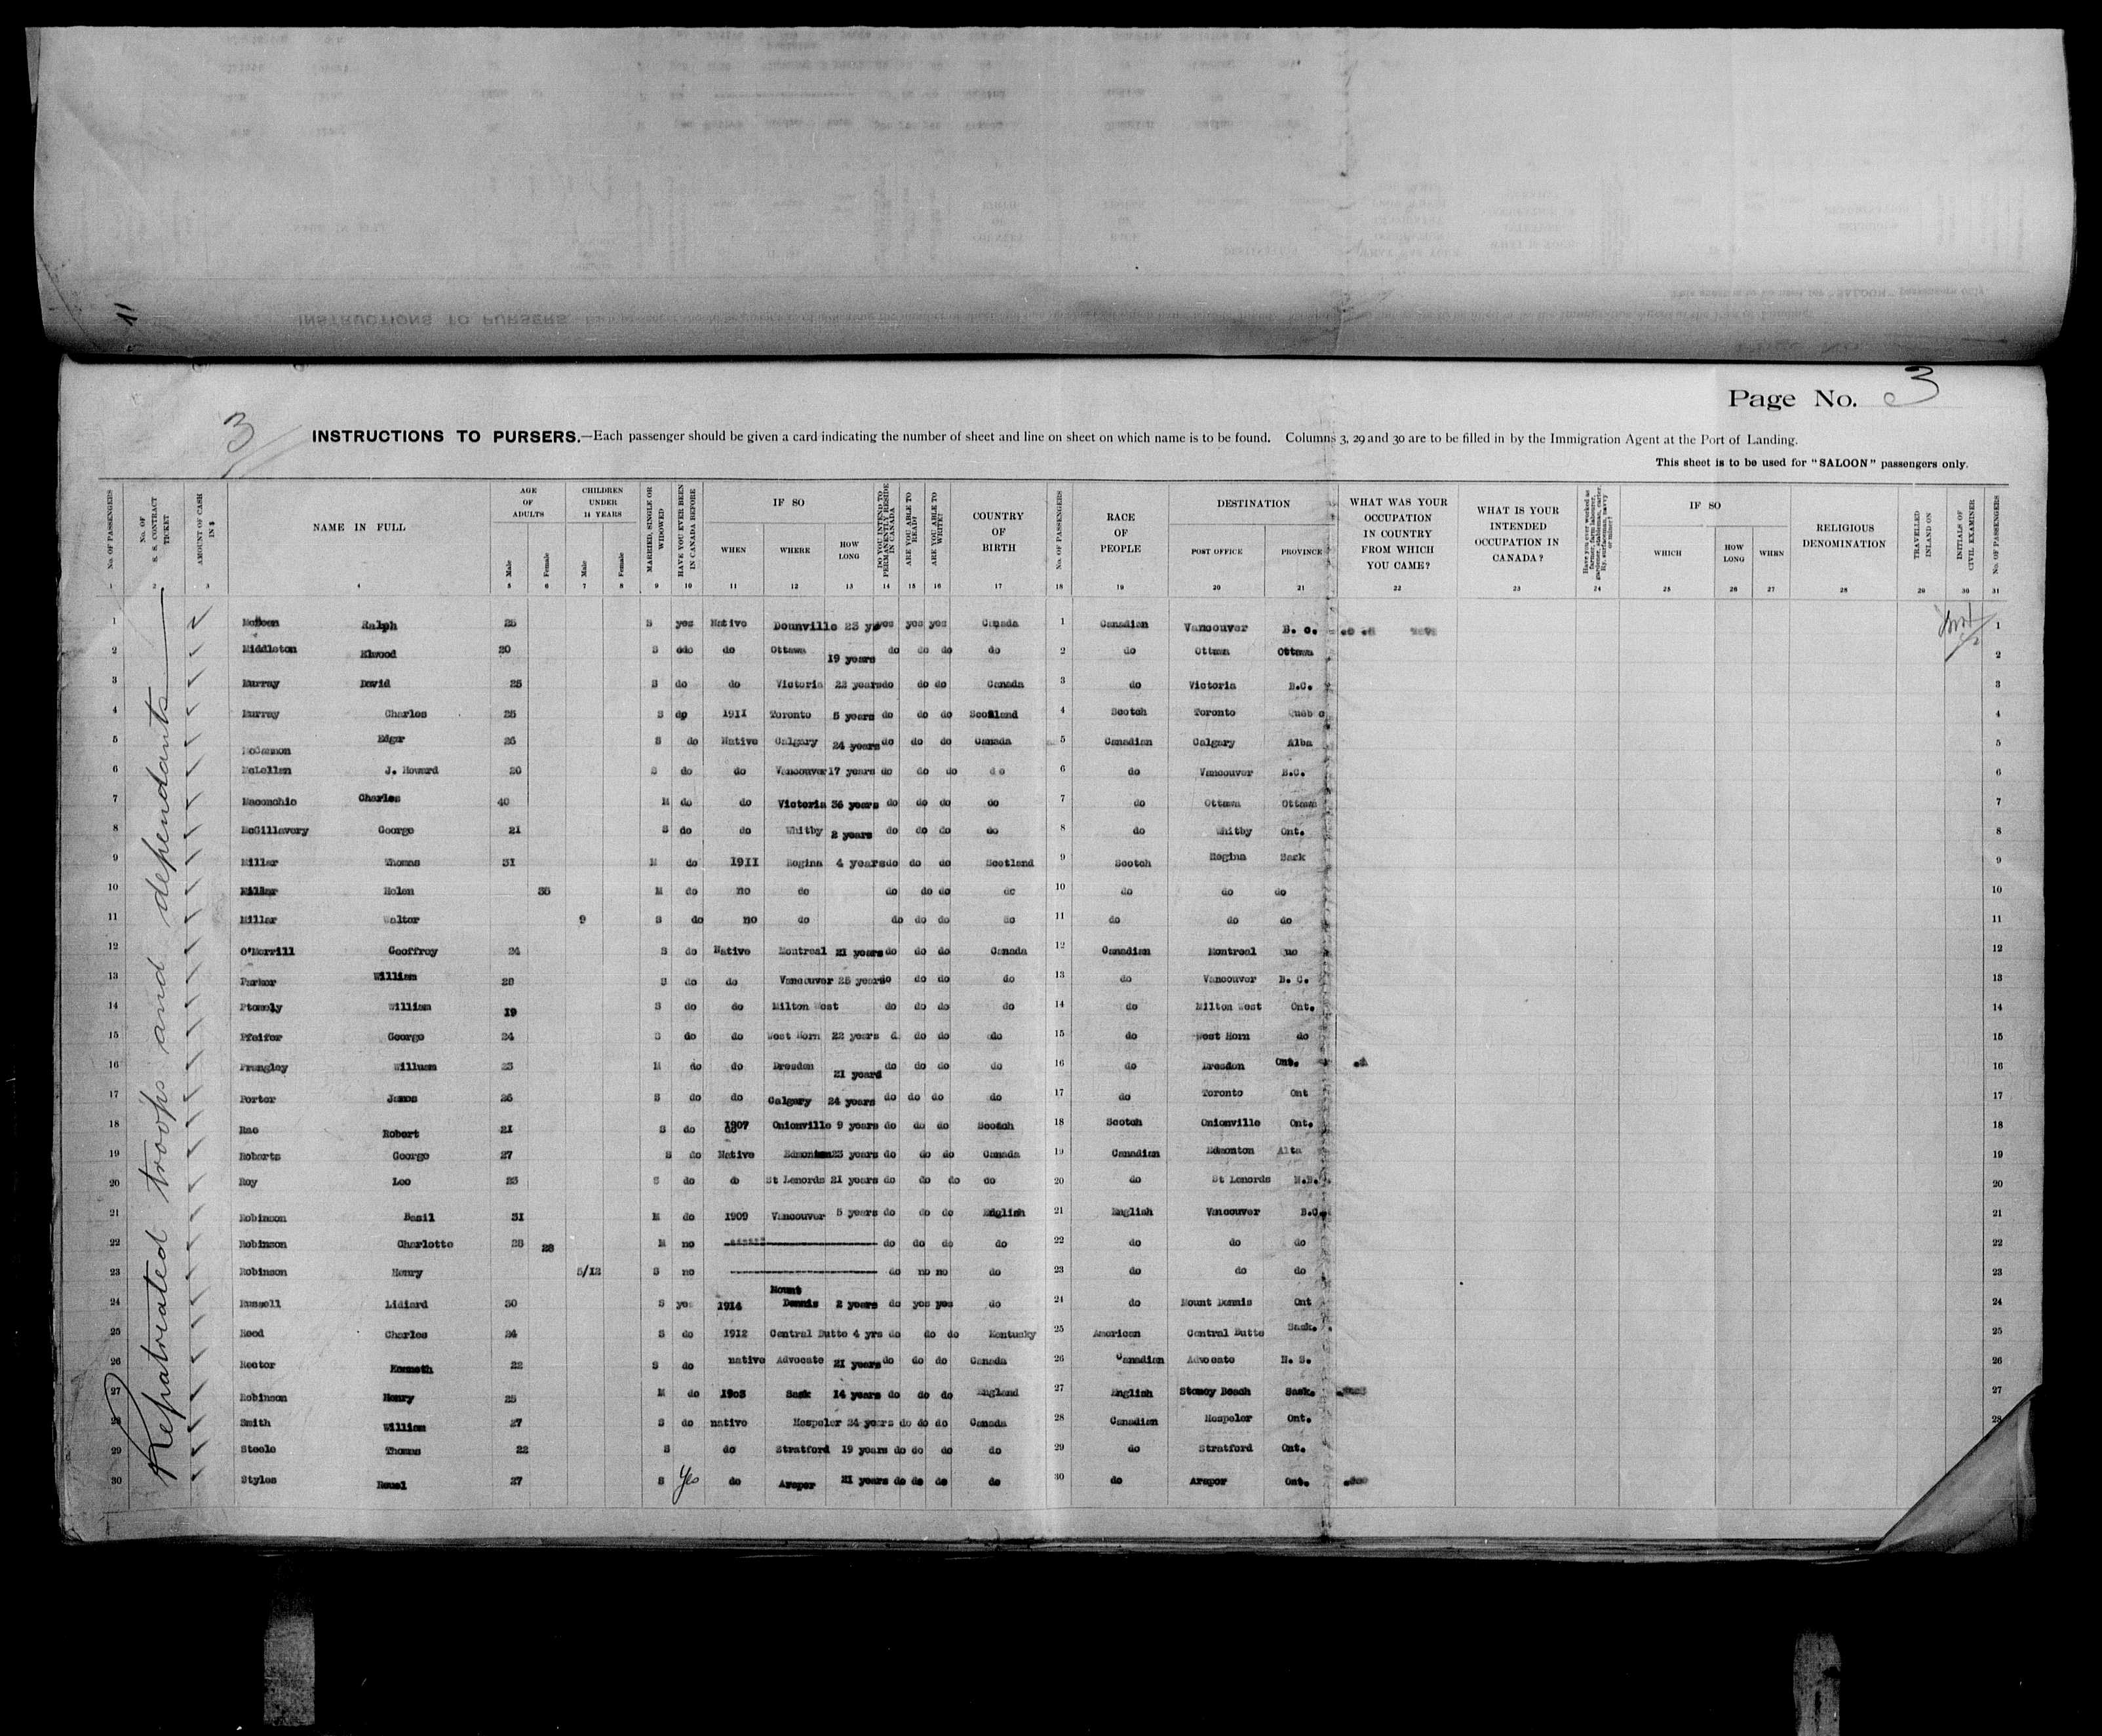 Page No. 3
3
INSTRUCTIONS TO PURSERS.—Each passenger should be given a card indicating the number of sheet and line on sheet on which name is to be found. Columns 3, 29 and 30 are to be filled in by the Immigration Agent at the Port of Landing.
This sheet is to be used for "SALOON" passengers only.
No. OF PASSENGERS No. OF S. S. CONTRACT TICKET AMOUNT OF CASH IN $ NAME IN FULL AGE OF ADULTS Male Female CHILDREN UNDER 14 YEARS Male Female MARRIED, SINGLE OR WIDOWED HAVE YOU EVER BEEN IN CANADA BEFORE IF SO WHEN WHERE HOW LONG DO YOU INTEND TO PERMANENTLY RESIDE IN CANADA ARE YOU ABLE TO READ? ARE YOU ABLE TO WRITE? COUNTRY OF BIRTH No. OF PASSENGERS RACE OF PEOPLE DESTINATION POST OFFICE PROVINCE WHAT WAS YOUR OCCUPATION IN COUNTRY FROM WHICH YOU CAME? WHAT IS YOUR INTENDED OCCUPATION IN CANADA? Have you ever worked as farmer, farm labourer, gardener, stableman, carter, Ry. surfaceman, navvy or miner? IF SO WHICH HOW LONG WHEN RELIGIOUS DENOMINATION TRAVELLED INLAND ON INITIALS OF CIVIL EXAMINER No. OF PASSENGERS
1 2 3 4 5 6 7 8 9 10 11 12 13 14 15 16 17 18 19 20 21 22 23 24 25 26 27 28 29 30 31
Repatriated troops and dependants
1 Ralph 25 S yes Native Dounville 23 yes yes yes Canada 1 Canadian Vancouver B. C. 1
2 Middleton Elwood 20 S do do Ottawa 19 years do do do do 2 do Ottawa Ottawa 2
3 Murray David 25 S do do Victoria 22 years do do do Canada 3 do Victoria B.C. 3
4 Murray Charles 25 S do 1911 Toronto 5 years do do do Scotland 4 Scotch Toronto 4
5 Edgar 26 S do Native Calgary 24 years do do do Canada 5 Canadian Calgary Alba 5
6 McLellan J. Howard 20 S do do Vancouver 17 years do do do do 6 do Vancouver B.C. 6
7 Maconchie Charles 40 M do do Victoria 36 years do do do do 7 do Ottawa Ottawa 7
8 McGillavery George 21 S do do Whitby 2 years do do do do 8 do Whitby Ont. 8
9 Millar Thomas 31 M do 1911 Regina 4 years do do do Scotland 9 Scotch Regina Sask 9
10 Millar Helen 35 M do no do do do do do 10 do do do 10
11 Millar Walter 9 S do no do do do do do 11 do do do 11
12 O'Merrill Geoffroy 24 S do Native Montreal 21 years do do do Canada 12 Canadian Montreal que 12
13 Parker William 28 S do do Vancouver 25 years do do do do 13 do Vancouver B. C. 13
14 Ptomely William 19 S do do Milton West do do do do 14 do Milton West Ont. 14
15 Pfeifer George 24 S do do West Horn 22 years d. do do do 15 do West Horn do 15
16 Prangley Willuam 23 M do do Dresden 21 years do do do do 16 do Dresden Ont. 16
17 Porter James 26 S do do Calgary 24 years do do do do 17 do Toronto Ont 17
18 Rae Robert 21 S do 1907 Onionville 9 years do do do Scotch 18 Scotch Onionville Ont. 18
19 Roberts George 27 S do Native Edmonton 23 years do do do Canada 19 Canadian Edmonton Alta 19
20 Roy Leo 23 S do do St Lenords 21 years do do do do 20 do St Lenords N.B. 20
21 Robinson Basil 31 M do 1909 Vancouver 5 years do do do English 21 English Vancouver B.C. 21
22 Robinson Charlotte 28 28 M no do do do do 22 do do do 22
23 Robinson Henry 5/12 S no do no no do 23 do do do 23
24 Russell Lidiard 30 S yes 1914 Mount Dennis 2 years do yes yes do 24 do Mount Dennis Ont 24
25 Reed Charles 24 S do 1912 Central Butte 4 yrs do do do Kentusky 25 American Central Butte Sask. 25
26 Rector Kenneth 22 S do native Advocate 21 years do do do Canada 26 Canadian Advocate N. S. 26
27 Robinson Henry 25 M do 1903 Sask 14 years do do do England 27 English Stoney Beach Sask. 27
28 Smith William 27 S do native Hespeler 24 years do do do Canada 28 Canadian Hespeler Ont. 28
29 Steele Thomas 22 S do Stratford 19 years do do do do 29 do Stratford Ont. 29
30 Styles 27 S Yes do Arnpor 21 years do do do do 30 do Arnpor Ont. 30